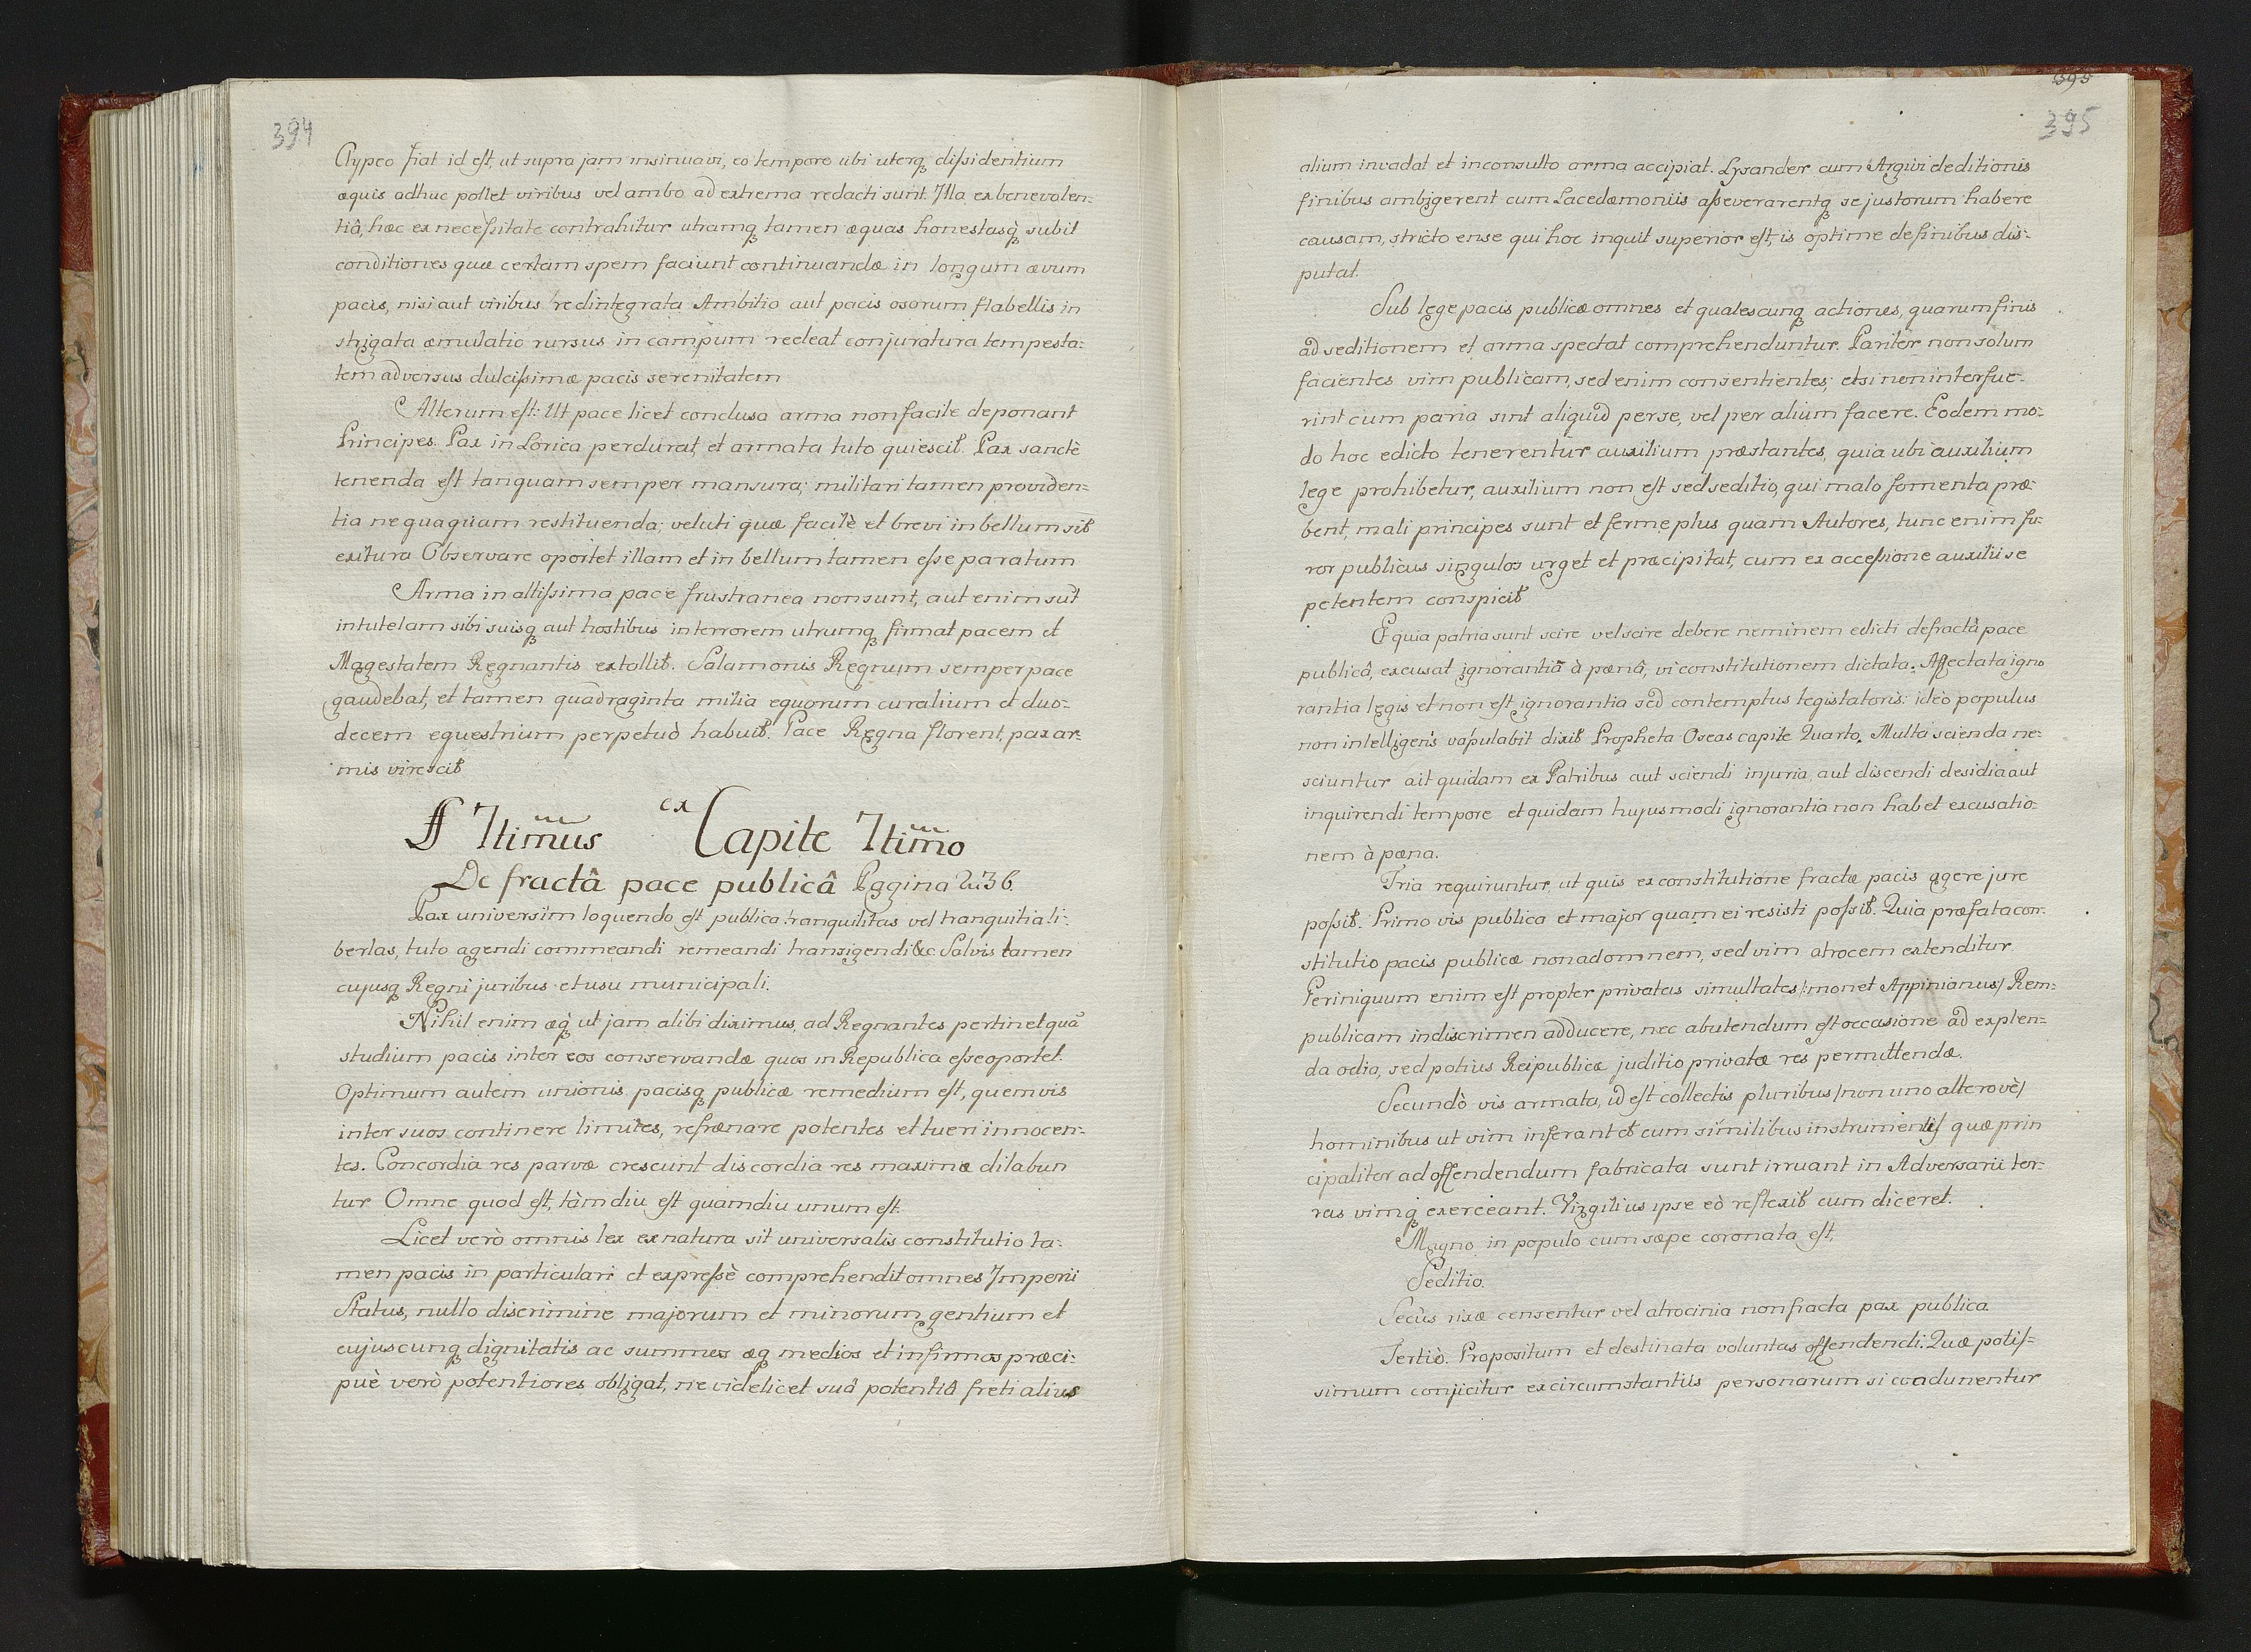 394
Clypeo fiat id est, ut supra jam insinuavi, eo tempore ubi uterq̃ dissidentium
æquis adhuc pollet viribus vel ambo ad extrema redacti sunt. Illa ex benevolen=
tiâ, hæc ex necessitate contrahitur utramq̃ tamen æquas honestasq̃ subit
conditiones quæ certam spem faciunt continuandæ in longum ævum
pacis, nisi aut viribus redintegrata Ambitio aut pacis osorum flabellis in
strigata æmulatio rursus in campum redeat conjuratura tempesta=
tem adversus dulcissimæ pacis serenitatem
Alterum est: Ut pace licet conclusa arma non facile deponant
Principes. Pax in Lorica perdurat, et armata tuto quiescit. Pax sanctè
tenenda est tanquam semper mansura; militari tamen providen=
tia nequaquam restituenda; veluti quæ facilè et brevi in bellum sit
exitura Observare oportet illam et in bellum tamen esse paratum
Arma in altissima pace frustranea non sunt, aut enim sut̄
in tutelam sibi suisq̃ aut hostibus in terrorem utrumq̃ firmat pacem et
Magestatem Regnantis extollit. Salamonis Regnum semper pace
gaudebat, et tamen quadraginta milia equorum curalium et duo=
decem equestrium perpetuò habuit. Pace Regna florent, pax ar=
mis virescit
§ 7timus ex Capite 7timo
De fractâ pace publicâ Pagina 236.
Pax universim loquendo est publica tranquilitas vel tranquilla li=
bertas, tuto agendi commeandi remeandi transigendi &c. Salvis tamen
cujusq̃ Regni juribus et usu municipali.
Nihil enim æq̃ ut jam alibi diximus, ad Regnantes pertinet quā
studium pacis inter eos conservandæ quos in Republica esse oportet.
Optimum autem unionis pacisq̃ publicæ remedium est, quemvis
inter suos continere limites, refrænare potentes et tueri innocen=
tes. Concordia res parvæ crescunt discordia res maximæ dilabun
tur Omne quod est, tàmdiu est quamdiu unum est.
Licet verò omnis lex ex natura sit universalis constitutio ta=
men pacis in particulari et expressè comprehendit omnes Imperii
Status, nullo discrimine majorum et minorum gentium et
cujuscunq̃ dignitatis ac summos æq̃ medios et infirmos præci=
puè verò potentiores obligat, ne videlicet suâ potentiâ freti alius
395
395
alium invadat et inconsulto arma accipiat. Lysander cum Argivi de ditionis
finibus ambigerent cum Lacedæmoniis asseverarentq̃ se justorum habere
causam, stricto ense qui hoc inquit superior est, is optime de finibus dis=
putat.
Sub lege pacis publicæ omnes et qualescunq̃ actiones, quarum finis
ad seditionem et arma spectat comprehenduntur. Pariter non solum
facientes vim publicam, sed enim consentientes, etsi non interfue=
rint cum paria sint aliquid per se, vel per alium facere. Eodem mo=
do hoc edicto tenerentur auxilium præstantes, quia ubi auxilium
lege prohibetur, auxilium non est sed seditio, qui malo fomenta præ=
bent, mali principes sunt et ferme plus quam Autores, tunc enim fu=
ror publicus singulos urget et præcipitat, cum ex accessione auxilii se
petentem conspicit
Et quia patria sunt scire vel scire debere neminem edicti de fractâ pace
publicâ, excusat ignorantiā à pænâ, vi constitutionem dictata. Affectata igno
rantia legis et non est ignorantia sed contemptus legistatoris: ideò populus
non intelligens vapulabit dixit Propheta Oseas capite Quarto. Multa scienda ne=
sciuntur ait quidam ex Patribus aut sciendi injuria, aut discendi desidia aut
inquirendi tempore et quidam hujusmodi ignorantia non habet excusatio=
nem à pæna.
Tria requiruntur, ut quis ex constitutione fractæ pacis agere jure
possit. Primo vis publica et major quam ei resisti possit. Quia præfata con=
stitutio pacis publicæ non ad omnem, sed vim atrocem extenditur.
Periniquum enim est propter privatas simultates /:monet Appinianus/ Rem=
publicam in discrimen adducere, nec abutendum est occasione ad explen=
da odia, sed potius Reipublicæ juditio privatæ res permittendæ.
Secundò vis armata, id est collectis pluribus /non uno alterovè/
hominibus ut vim inferant et cum similibus instrumentis quæ prin
cipaliter ad offendendum fabricata sunt irruant in Adversarii ter=
ras vimq̃ exerceant. Virgilius ipse eò reflexit cum diceret.
Magno in populo cum sæpe coronata est,
Seditio.
Secùs rixæ censentur vel atrocinia non fracta pax publica
Tertiò. Propositum et destinata voluntas offendendi. Quæ potis=
simum conjicitur ex circumstantiis personarum si coadunentur